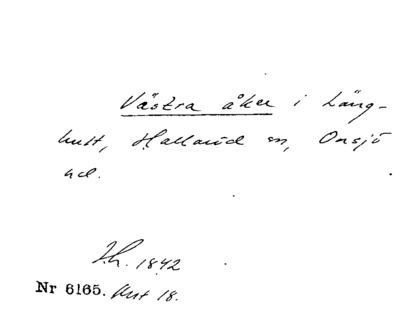 Västra åker i Läng-
hult, Halland sn, Onsjö
hd.
Sh. 1842
Nr 6165. Akt 18.